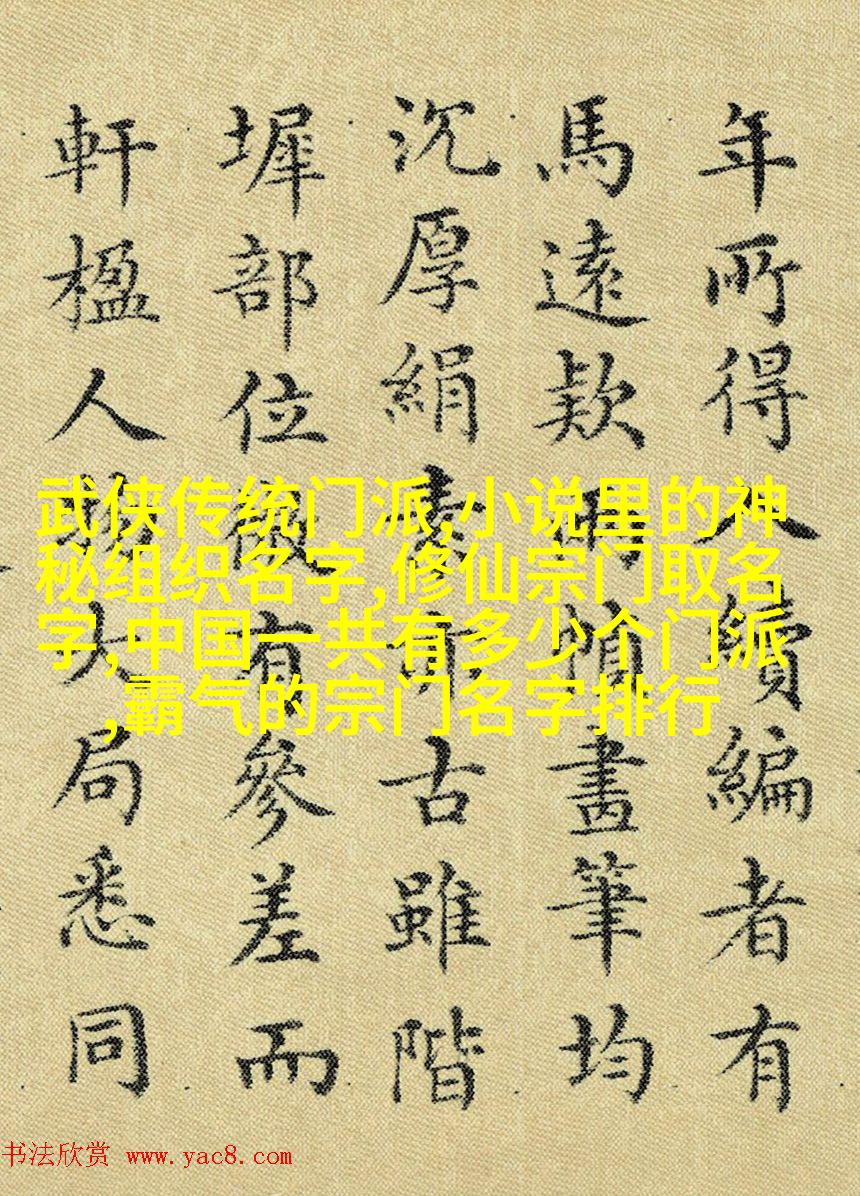 年所得人續編者有
馬遠款幀畫筆均
沉厚絹素亦古雖階
墀部位微有參差而
軒楹人大局悉同
武侠传统门派,小说里的神
秘组织名字,修仙宗门取名
字,中国一共有多少个门派
,霸气的宗门名字排行
书法欣赏 www.yac8.com